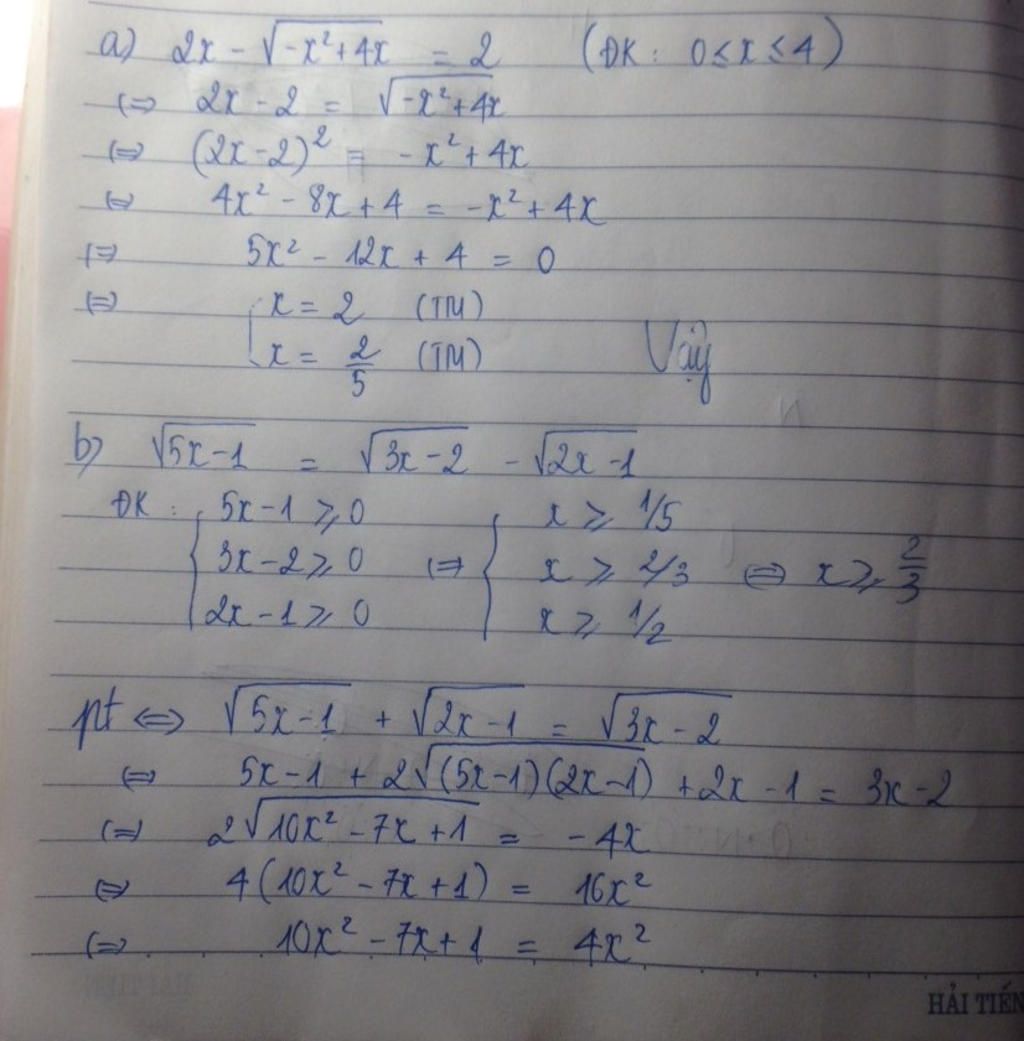 a) 2x - √(-x² + 4x) = 2 (ĐK: 0 ≤ x ≤ 4)
⇔ 2x - 2 = √(-x² + 4x)
⇔ (2x - 2)² = -x² + 4x
⇔ 4x² - 8x + 4 = -x² + 4x
⇔ 5x² - 12x + 4 = 0
⇔ [ x = 2 (TM)
x = 2/5 (TM) Vậy
b) √(5x - 1) = √(3x - 2) - √(2x - 1)
ĐK: { 5x - 1 ≥ 0 x ≥ 1/5
3x - 2 ≥ 0 ⇔ { x ≥ 2/3 ⇔ x ≥ 2/3
2x - 1 ≥ 0 x ≥ 1/2
pt ⇔ √(5x - 1) + √(2x - 1) = √(3x - 2)
⇔ 5x - 1 + 2√((5x - 1)(2x - 1)) + 2x - 1 = 3x - 2
⇔ 2√(10x² - 7x + 1) = -4x
⇔ 4(10x² - 7x + 1) = 16x²
⇔ 10x² - 7x + 1 = 4x²
HẢI TIẾN